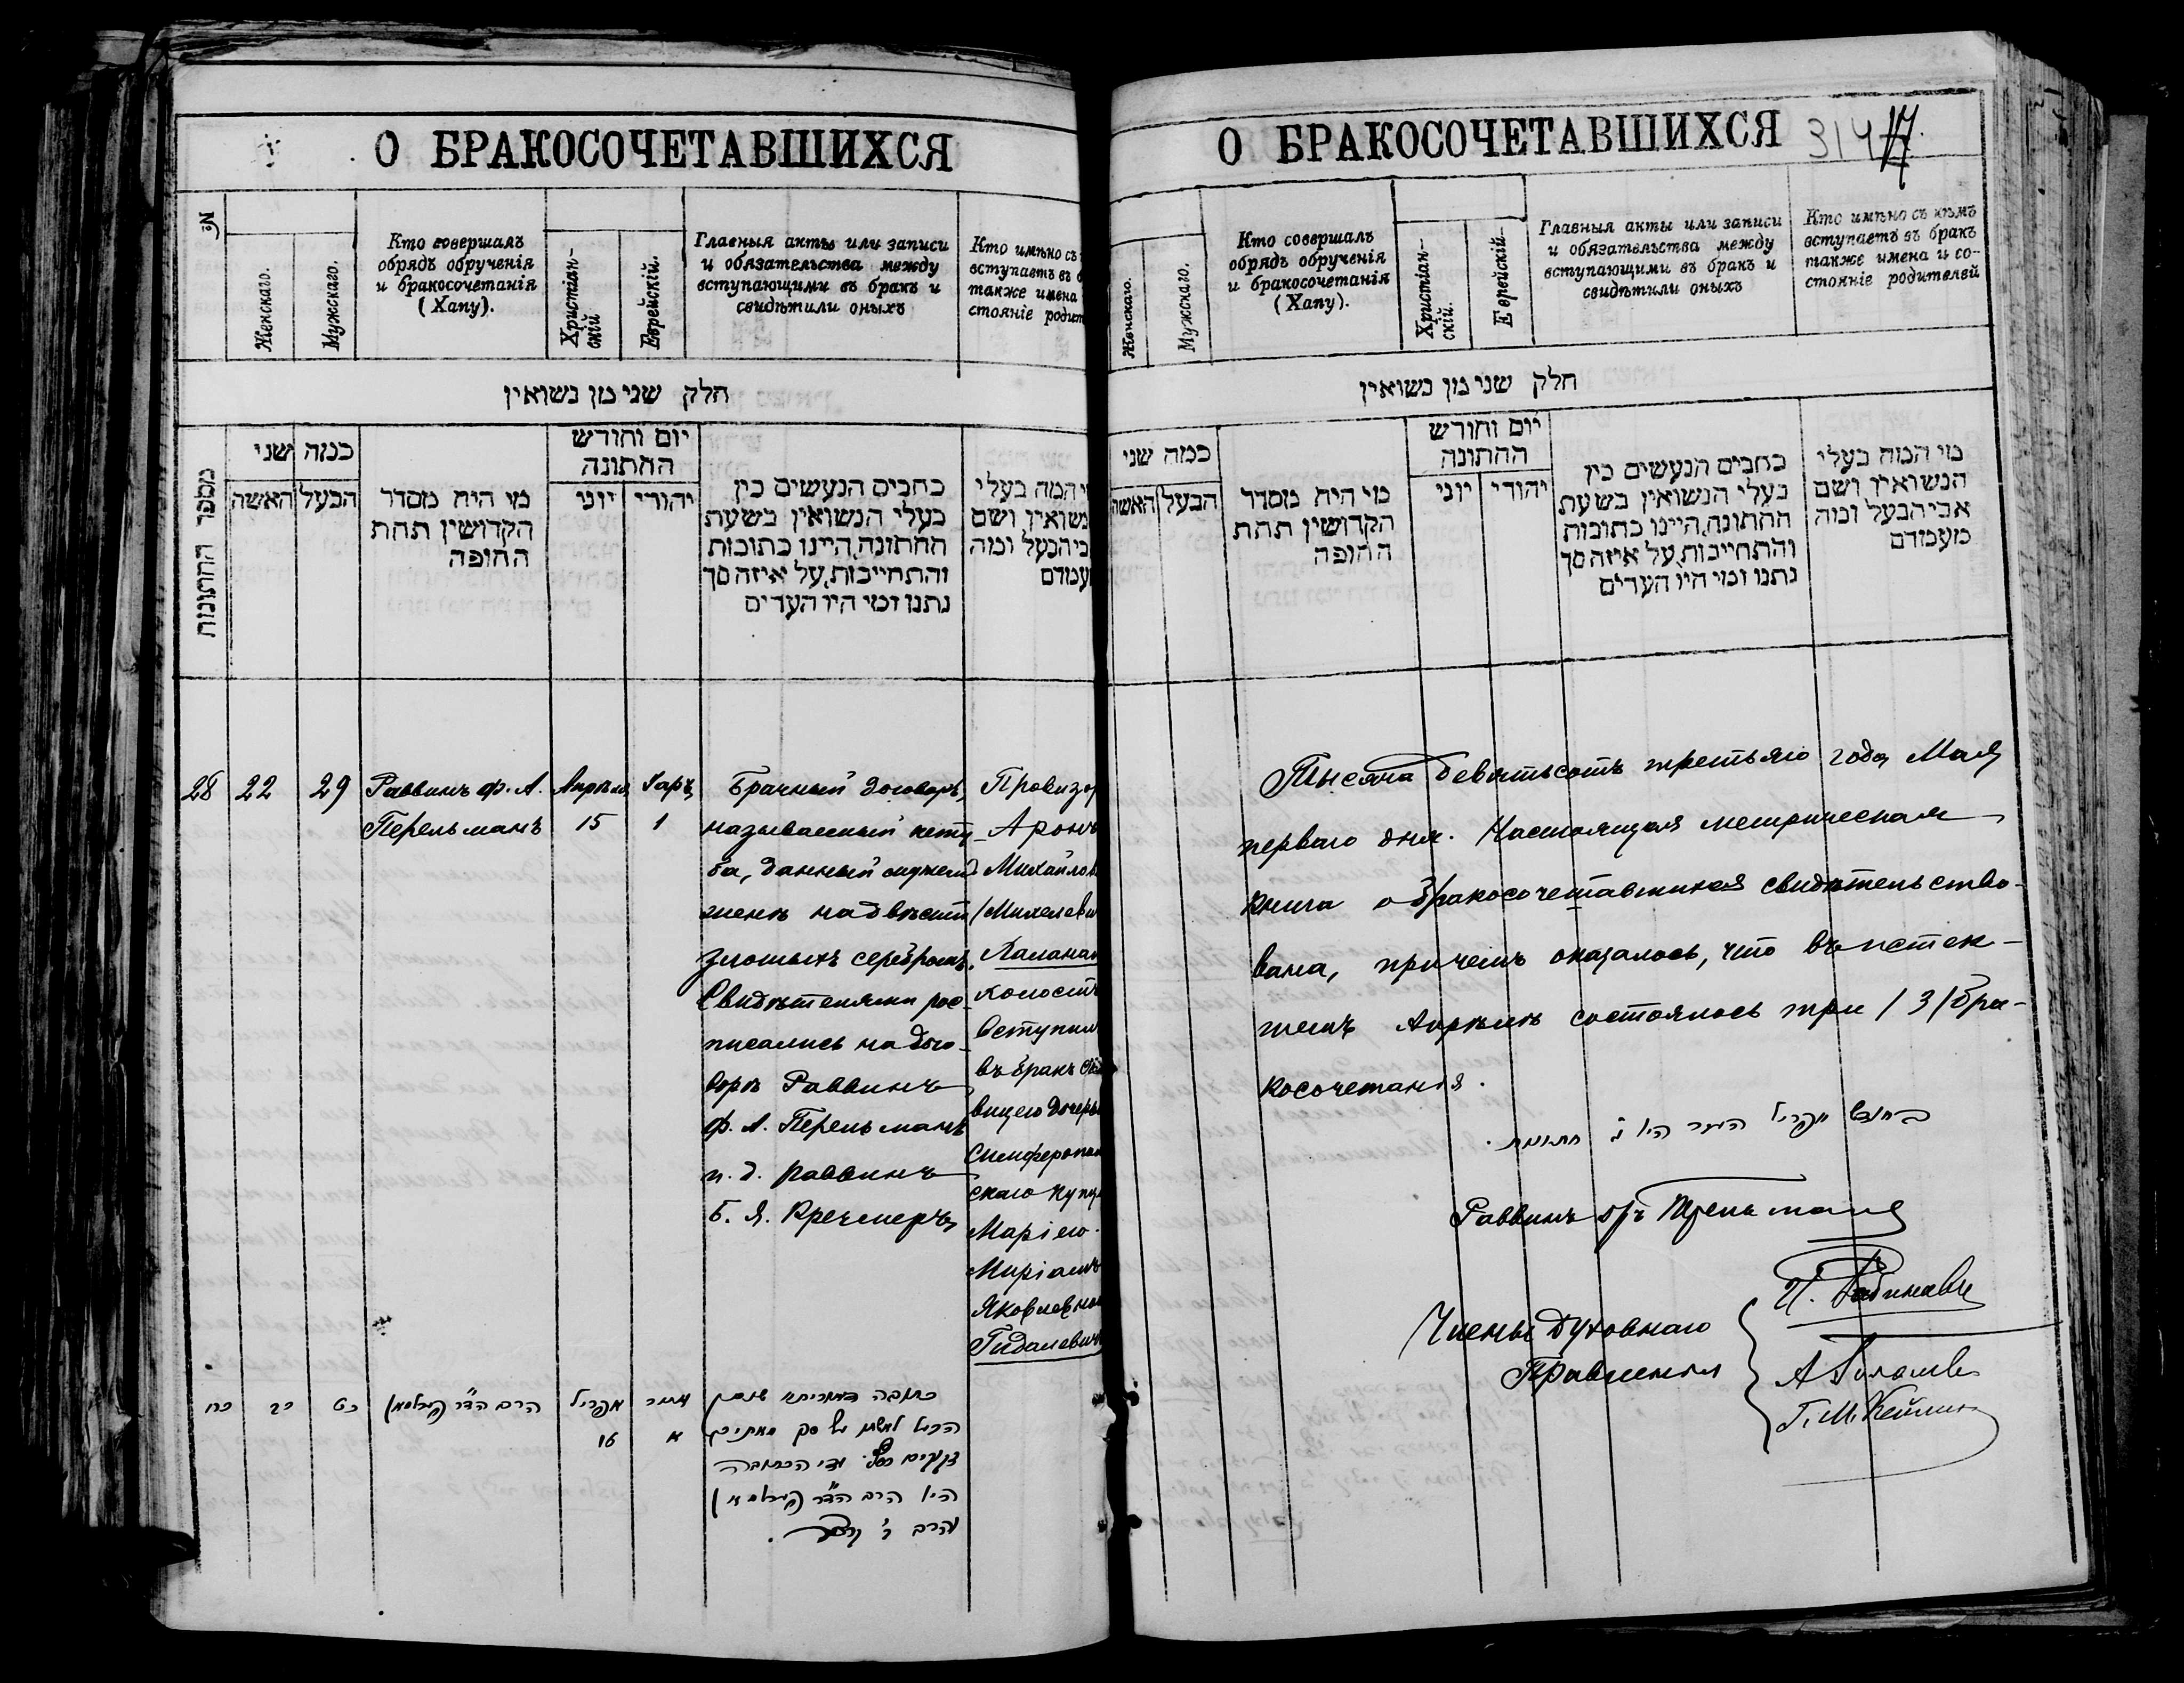 О БРАКОСОЧЕТАВШИХСЯ
№
Женскаго.
Мужскаго.
Кто совершалъ
обрядъ обрученія
и бракосочетанія
(Хапу).
Христіан-
скій
Еврейскій.
Главныя акты или записи
и обязательства между
вступающими въ бракъ и
свидѣтили оныхъ
Кто имѣно съ
вступаетъ въ б
также имена
стояніе родит
חלק שני מן נשואין
מספר החתונות
כמה שני
האשה
הבעל
מי היה מסדר
הקדושין תחת
החופה
יום וחורש
החתונה
יוני
יהודי
כתבים הנעשים בין
בעלי הנשואין בשעת
החתונה, היינו כתובות
והתחייבות, על איזה סך
נתנו ומי היו העדים
י המה בעלי
נשואין, ושם
בי הבעל ומה
עמדם
28
22
29
Раввинъ Ф. А.
Перельманъ
Апрѣля
15
Іаръ
1
Брачный договоръ,
называемый кету-
ба, данный мужемъ
женѣ на двѣсти
злотыхъ серебромъ.
Свидѣтелями рос-
писались на дого-
ворѣ Раввинъ
Ф. А. Перельманъ
и. д. раввинъ
Б. Я. Кречмеръ
Провизор
Аронъ
Михайлов
(Михелеви
холостъ
вступил
въ бракъ съ дѣ
вицею дочерью
Симферопол
скаго купц
Маріею-
Миріамъ
Яковлевно
Гидалевич
כח
כב
כט
הרב הד״ר פערלמאן
אפריל
16
אייר
א
כתובה דאורייתא שנתן
הבעל לאשתו על סך מאתים
זקוקים כסף. עדי הכתובה
היו הרב הד״ר פערלמאן
והרב
О БРАКОСОЧЕТАВШИХСЯ
314
17.
Женскаго.
Мужскаго.
Кто совершалъ
обрядъ обрученія
и бракосочетанія
(Хапу).
Христіан-
скій.
Еврейскій
Главныя акты или записи
и обязательства между
вступающими въ бракъ и
свидѣтили оныхъ
Кто имѣно съ кѣмъ
вступаетъ въ бракъ
также имена и со-
стояніе родителей
חלק שני מן נשואין
כמה שני
האשה
הבעל
מי היה מסדר
הקדושין תחת
החופה
יום וחורש
החתונה
יוני
יהודי
כתבים הנעשים בין
בעלי הנשואין בשעת
החתונה, היינו כתובות
והתחייבות, על איזה סך
נתנו ומי היו העדים
מי המה בעלי
הנשואין ושם
אבי הבעל ומה
מעמדם
Тысяча девятьсотъ третьяго года Мая
перваго дня. Настоящая метрическая
книга о бракосочетавшихся свидѣтельство-
вана, причемъ оказалось, что въ истек-
шемъ Апрѣлѣ состоялось три /3/ бра-
косочетанія.
בחודש אפריל העבר היו ג׳ חתונות.
Раввинъ Перельманъ
Члены Духовнаго
Правленія